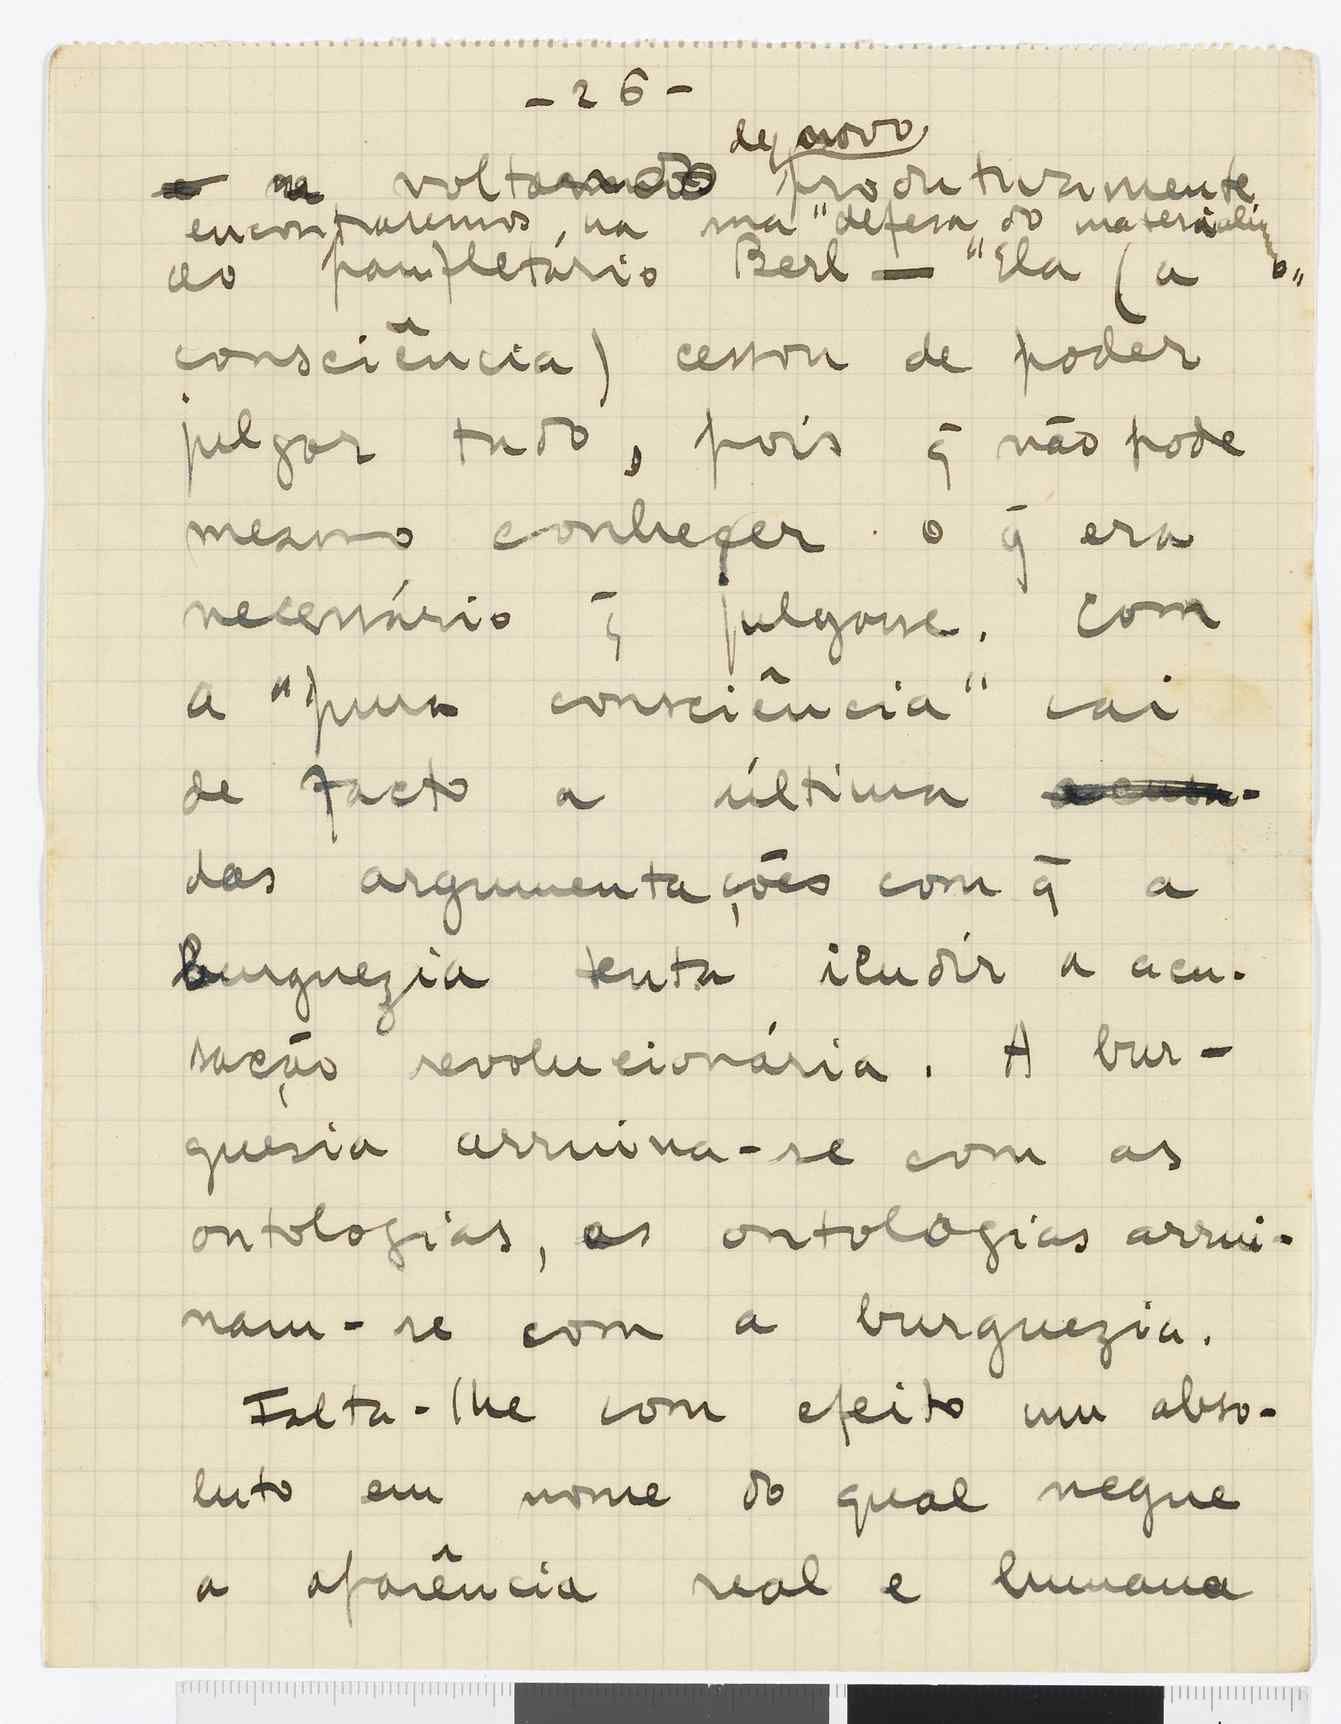 - 26 -
de novo
voltando produtivamente
encontraremos, na sua "defesa do materialismo"
ao panfletário Berl — "Ela (a
consciência) cessou de poder
julgar tudo, pois q̄ não pode
mesmo conhecer o q̄ era
necessário q̄ julgasse. Com
a "pura consciência" cai
de facto a última
das argumentações com q̄ a
burguezia tenta iludir a acu-
sação revolucionária. A bur-
guesia arruina-se com as
ontologias, as ontologias arrui-
nam-se com a burguezia.
Falta-lhe com efeito um abso-
luto em nome do qual negue
a aparência real e humana